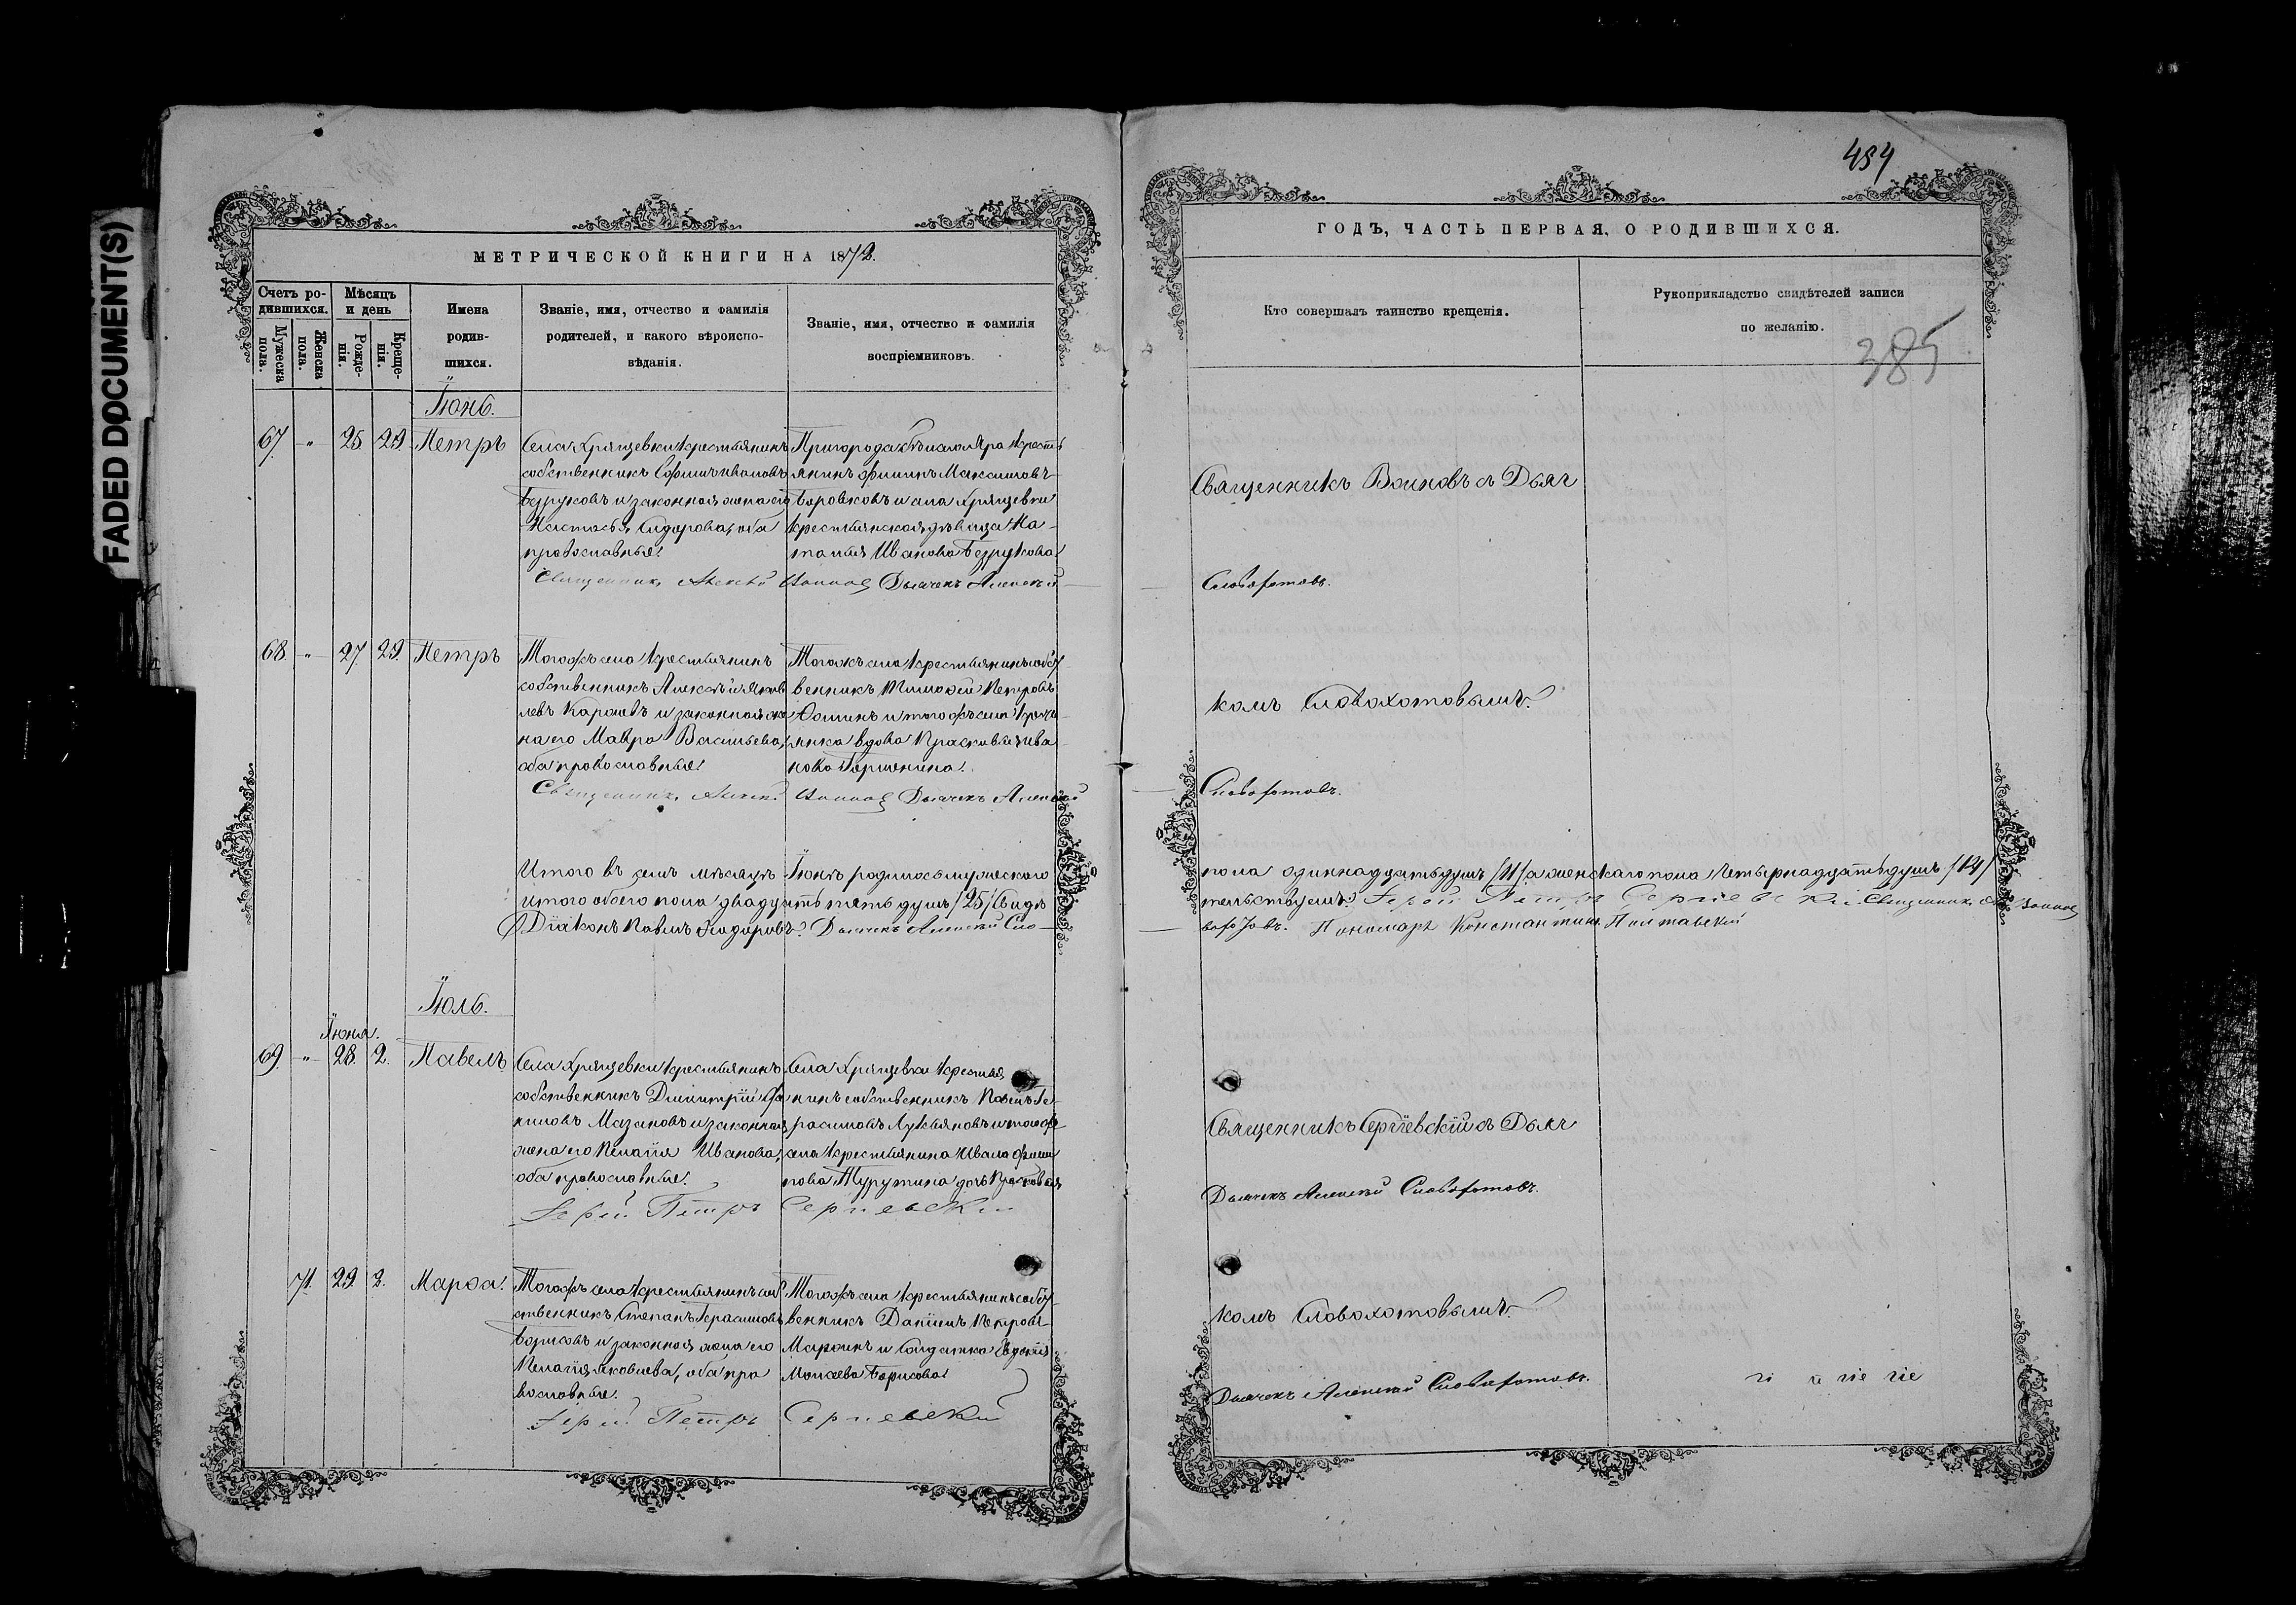 FADED DOCUMENT(S)
МЕТРИЧЕСКОЙ КНИГИ НА 1872.
Счетъ ро-
дившихся.
Мужеска
пола.
Женска
пола.
Мѣсяцъ
и день
Рожде-
нія.
Креще-
нія.
Имена
родив-
шихся.
Званіе, имя, отчество и фамилія
родителей, и какого вѣроиспо-
вѣданія.
Званіе, имя, отчество и фамилія
воспріемниковъ.
Іюнь.
67. " 25. 29. Петръ
Села Хрящевки крестьянинъ
собственникъ Ивановъ
Безруковъ и законная жена его
Настасья Сидорова, оба
православные.
Пригорода Бѣлаго Яра кресть
янинъ Филипъ Максимовъ
Боровковъ и села Хрящевки
крестьянская дѣвица На-
талья Иванова Безрукова.
Священникъ Алексѣй Воиновъ Дьячекъ Алексѣй
68. " 27 29. Петръ
Тогожъ села крестьянинъ
собственникъ Алексѣй Яковле
левъ и законная же
на его Мавра Васильева,
оба православные.
Тогожъ села крестьянинъ собст
венникъ Тимофей Петровъ
Фоминъ и тогожъ села крестья
янка вдова Прасковья Ива
нова
Священникъ Алексѣй Воиновъ Дьячекъ Алексѣй
Итого въ семъ мѣсяцѣ Іюнѣ родилось мужескаго
итого обоего пола двадцать пять душъ /25/ Свидѣ
Діаконъ Павелъ Ѳедоровъ. Дьячекъ Алексѣй Сло-
Іюль.
Іюня.
69. " 28. 2. Павелъ
Села Хрящевки крестьянинъ
собственникъ Димитрій
Мазановъ и законная
жена его Пелагія Иванова,
оба православные.
Села Хрящевки крестья
нинъ собственникъ Павелъ Ге-
расимовъ Лукьяновъ и тогожъ
села крестьянина Ивана Филип
пова дочь Прасковья
Іерей Петръ Сергіевскій
71. 29. 2. Марѳа.
Тогожъ села крестьянинъ соб
ственникъ Степанъ Герасимовъ
Борисовъ и законная жена его
Пелагія Яковлева, оба пра
вославные.
Тогожъ села крестьянинъ собст
венникъ Даніилъ Петровъ
и Солдатка Евдокія
Моисеева Борисова.
Іерей Петръ Сергіевскій
484
ГОДЪ, ЧАСТЬ ПЕРВАЯ, О РОДИВШИХСЯ.
Кто совершалъ таинство крещенія.
Рукоприкладство свидѣтелей записи
по желанію.
385
Священникъ Воиновъ съ Дьяч
Словохотовъ.
комъ Словохотовымъ.
Словохотовъ.
пола одиннадцать душъ /11/ а женскаго пола четырнадцать душъ /14/
тельствуемъ: Іерей Петръ Сергіевскій. Священникъ Воиновъ
вохотовъ. Пономарь Константинъ Полтавскій
Священникъ Сергіевскій съ Дьяч
Дьячекъ Алексѣй Словохотовъ.
комъ Словохотовымъ.
Дьячекъ Алексѣй Словохотовъ.